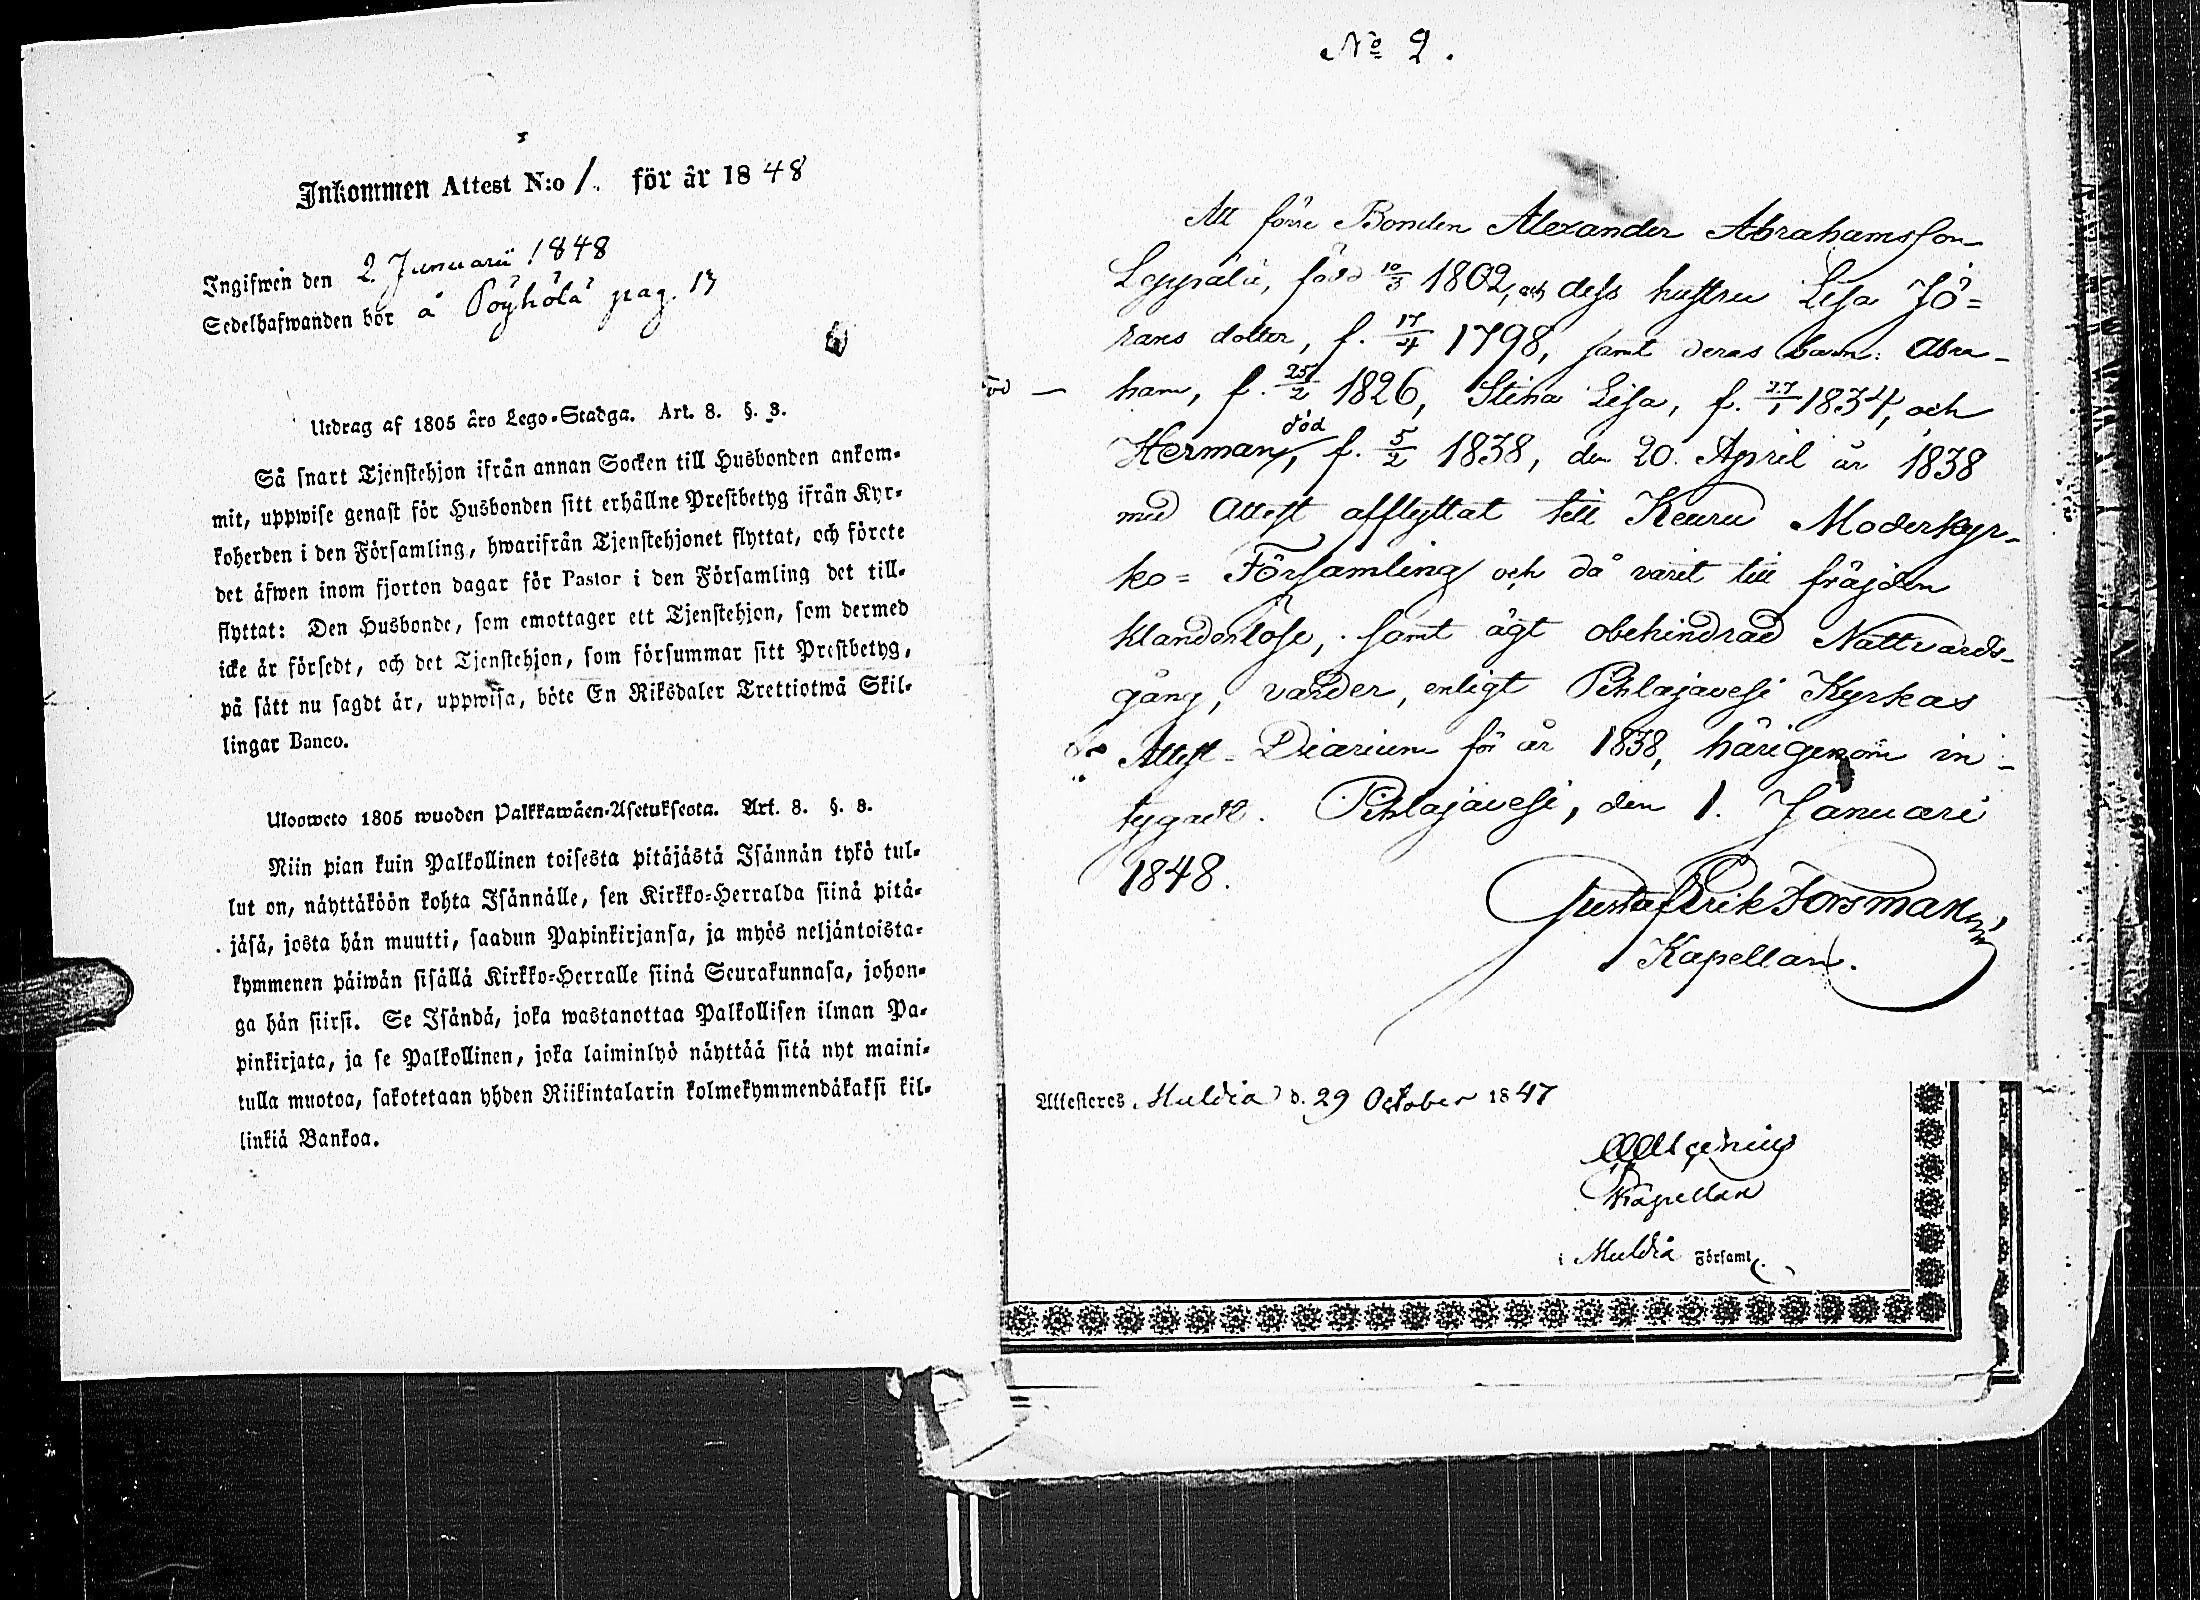 Inkommen Attest N:o 1. för år 1848
Ingifwen den 2. Januarii 1848
Sedelhafwanden bor å Pöyhölä pag. 17
Utdrag af 1805 års Lego-Stadga. Art. 8. §. 3.
Så snart Tjenstehjon ifrån annan Socken till Husbonden ankom-
mit, uppwise genast för Husbonden sitt erhållne Prestbetyg ifrån Kyr-
koherden i den Församling, hwarifrån Tjenstehjonet flyttat, och förete
det äfwen inom fjorton dagar för Pastor i den Församling det till-
flyttat: Den Husbonde, som emottager ett Tjenstehjon, som dermed
icke är försedt, och det Tjenstehjon, som försummar sitt Prestbetyg,
på sätt nu sagdt är, uppwisa, böte En Riksdaler Trettiotwå Skil-
lingar Banco.
Ulosweto 1805 wuoden Palkkawäen-Asetuksesta. Art. 8. §. 8.
Niin pian kuin Palkollinen toisesta pitäjästä Isännän tykö tul-
lut on, näyttäköön kohta Isännälle, sen Kirkko-Herralda siinä pitä-
jäsä, josta hän muutti, saadun Papinkirjansa, ja myös neljäntoista-
kymmenen päiwän sisällä Kirkko-Herralle siinä Seurakunnasa, johon-
ga hän siirsi. Se Isändä, joka wastanottaa Palkollisen ilman Pa-
pinkirjata, ja se Palkollinen, joka laiminlyö näyttää sitä nyt maini-
tulla muotoa, sakotetaan yhden Riikintalarin kolmekymmendäkaksi kil-
linkiä Bankoa.
No 2.
Att förre Bonden Alexander Abrahamsson
Leppälä, född 10/3 1802, och dess hustru Lisa Jö=
rans dotter, f. 17/4 1798, samt deras barn: Abra-
ham, f. 25/2 1826, Stina Lisa, f. 27/1 1834, och
död
Herman, f. 5/2 1838, den 20. April år 1838
med Attest afflyttat till Keuru Moderkyr-
ko= Församling och då varit till fräjden
klanderlöse, samt ägt obehindrad Nattvards-
gång, varder, enligt Pihlajavesi Kyrkas
Attest-Diarium för år 1838, härigenom in-
tygadt. Pihlajavesi, den 1. Januari
1848.
Gustaf Erik Forsman
Kapellan.
Attesteres, Muldia d. 29 October 1847
Kapellan
i Muldia Församl.